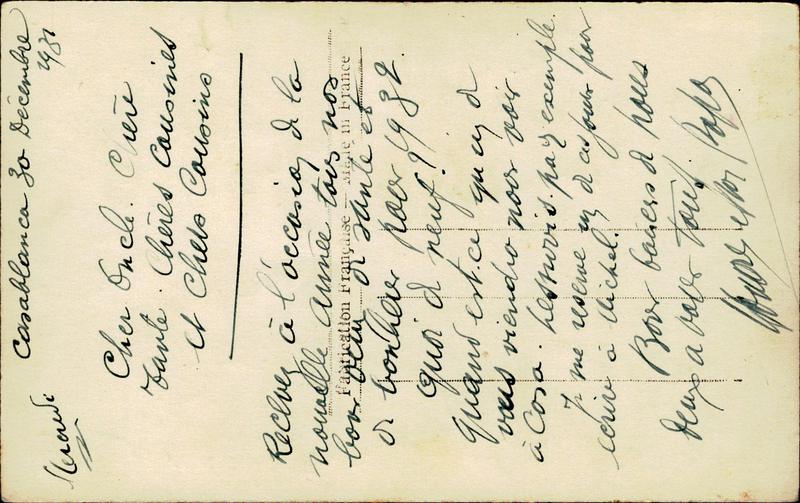 Casablanca 30 Décembre
1931
Mercredi
Cher Oncle. Chère
Tante. Chères Cousines
et Chers Cousins
Recevez à l'occasion de la
nouvelle Année tous nos
bons de santé et
de bonheur pour 1932.
Quoi de neuf?
Quand est-ce qu'on
vous viendra nous voir
à Casa. par exemple.
Je me réserve un de ces jours pour
écrire à Michel.
Bons baisers de nous
deux a vous Tous
Fabrication Française — Made in France